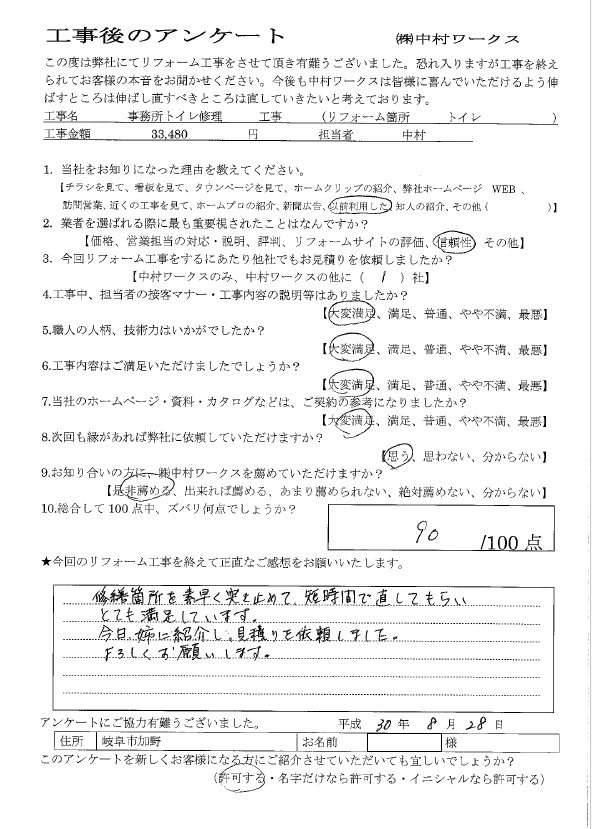 工事後のアンケート ㈱中村ワークス
この度は弊社にてリフォーム工事をさせて頂き有難うございました。恐れ入りますが工事を終え
られてお客様の本音をお聞かせください。今後も中村ワークスは皆様に喜んでいただけるよう伸
ばすところは伸ばし直すべきところは直していきたいと考えております。
工事名 事務所トイレ修理 工事 (リフォーム箇所 トイレ )
工事金額 33,480 円 担当者 中村
1. 当社をお知りになった理由を教えてください。
【チラシを見て、看板を見て、タウンページを見て、ホームクリップの紹介、弊社ホームページ WEB 、
訪問営業、近くの工事を見て、ホームプロの紹介、新聞広告、以前利用した、知人の紹介、その他( )】
2. 業者を選ばれる際に最も重要視されたことはなんですか?
【価格、営業担当の対応・説明、評判、リフォームサイトの評価、信頼性 その他】
3. 今回リフォーム工事をするにあたり他社でもお見積りを依頼しましたか?
【中村ワークスのみ、中村ワークスの他に( 1 )社】
4.工事中、担当者の接客マナー・工事内容の説明等はありましたか?
【大変満足、満足、普通、やや不満、最悪】
5.職人の人柄、技術力はいかがでしたか?
【大変満足、満足、普通、やや不満、最悪】
6.工事内容はご満足いただけましたでしょうか?
【大変満足、満足、普通、やや不満、最悪】
7.当社のホームページ・資料・カタログなどは、ご契約の参考になりましたか?
【大変満足、満足、普通、やや不満、最悪】
8.次回も縁があれば弊社に依頼していただけますか?
【思う、思わない、分からない】
9.お知り合いの方に、㈱中村ワークスを薦めていただけますか?
【是非薦める、出来れば薦める、あまり薦められない、絶対薦めない、分からない】
10.総合して100点中、ズバリ何点でしょうか?
90 /100点
★今回のリフォーム工事を終えて正直なご感想をお願いいたします。
修繕箇所を素早く突き止めて、短時間で直してもらい
とても満足しています。
今日、姉に紹介し、見積りを依頼しました。
よろしくお願いします。
アンケートにご協力有難うございました。 平成 30 年 8 月 28 日
住所 岐阜市加野 お名前 様
このアンケートを新しくお客様になる方にご紹介させていただいても宜しいでしょうか?
(許可する・名字だけなら許可する・イニシャルなら許可する)